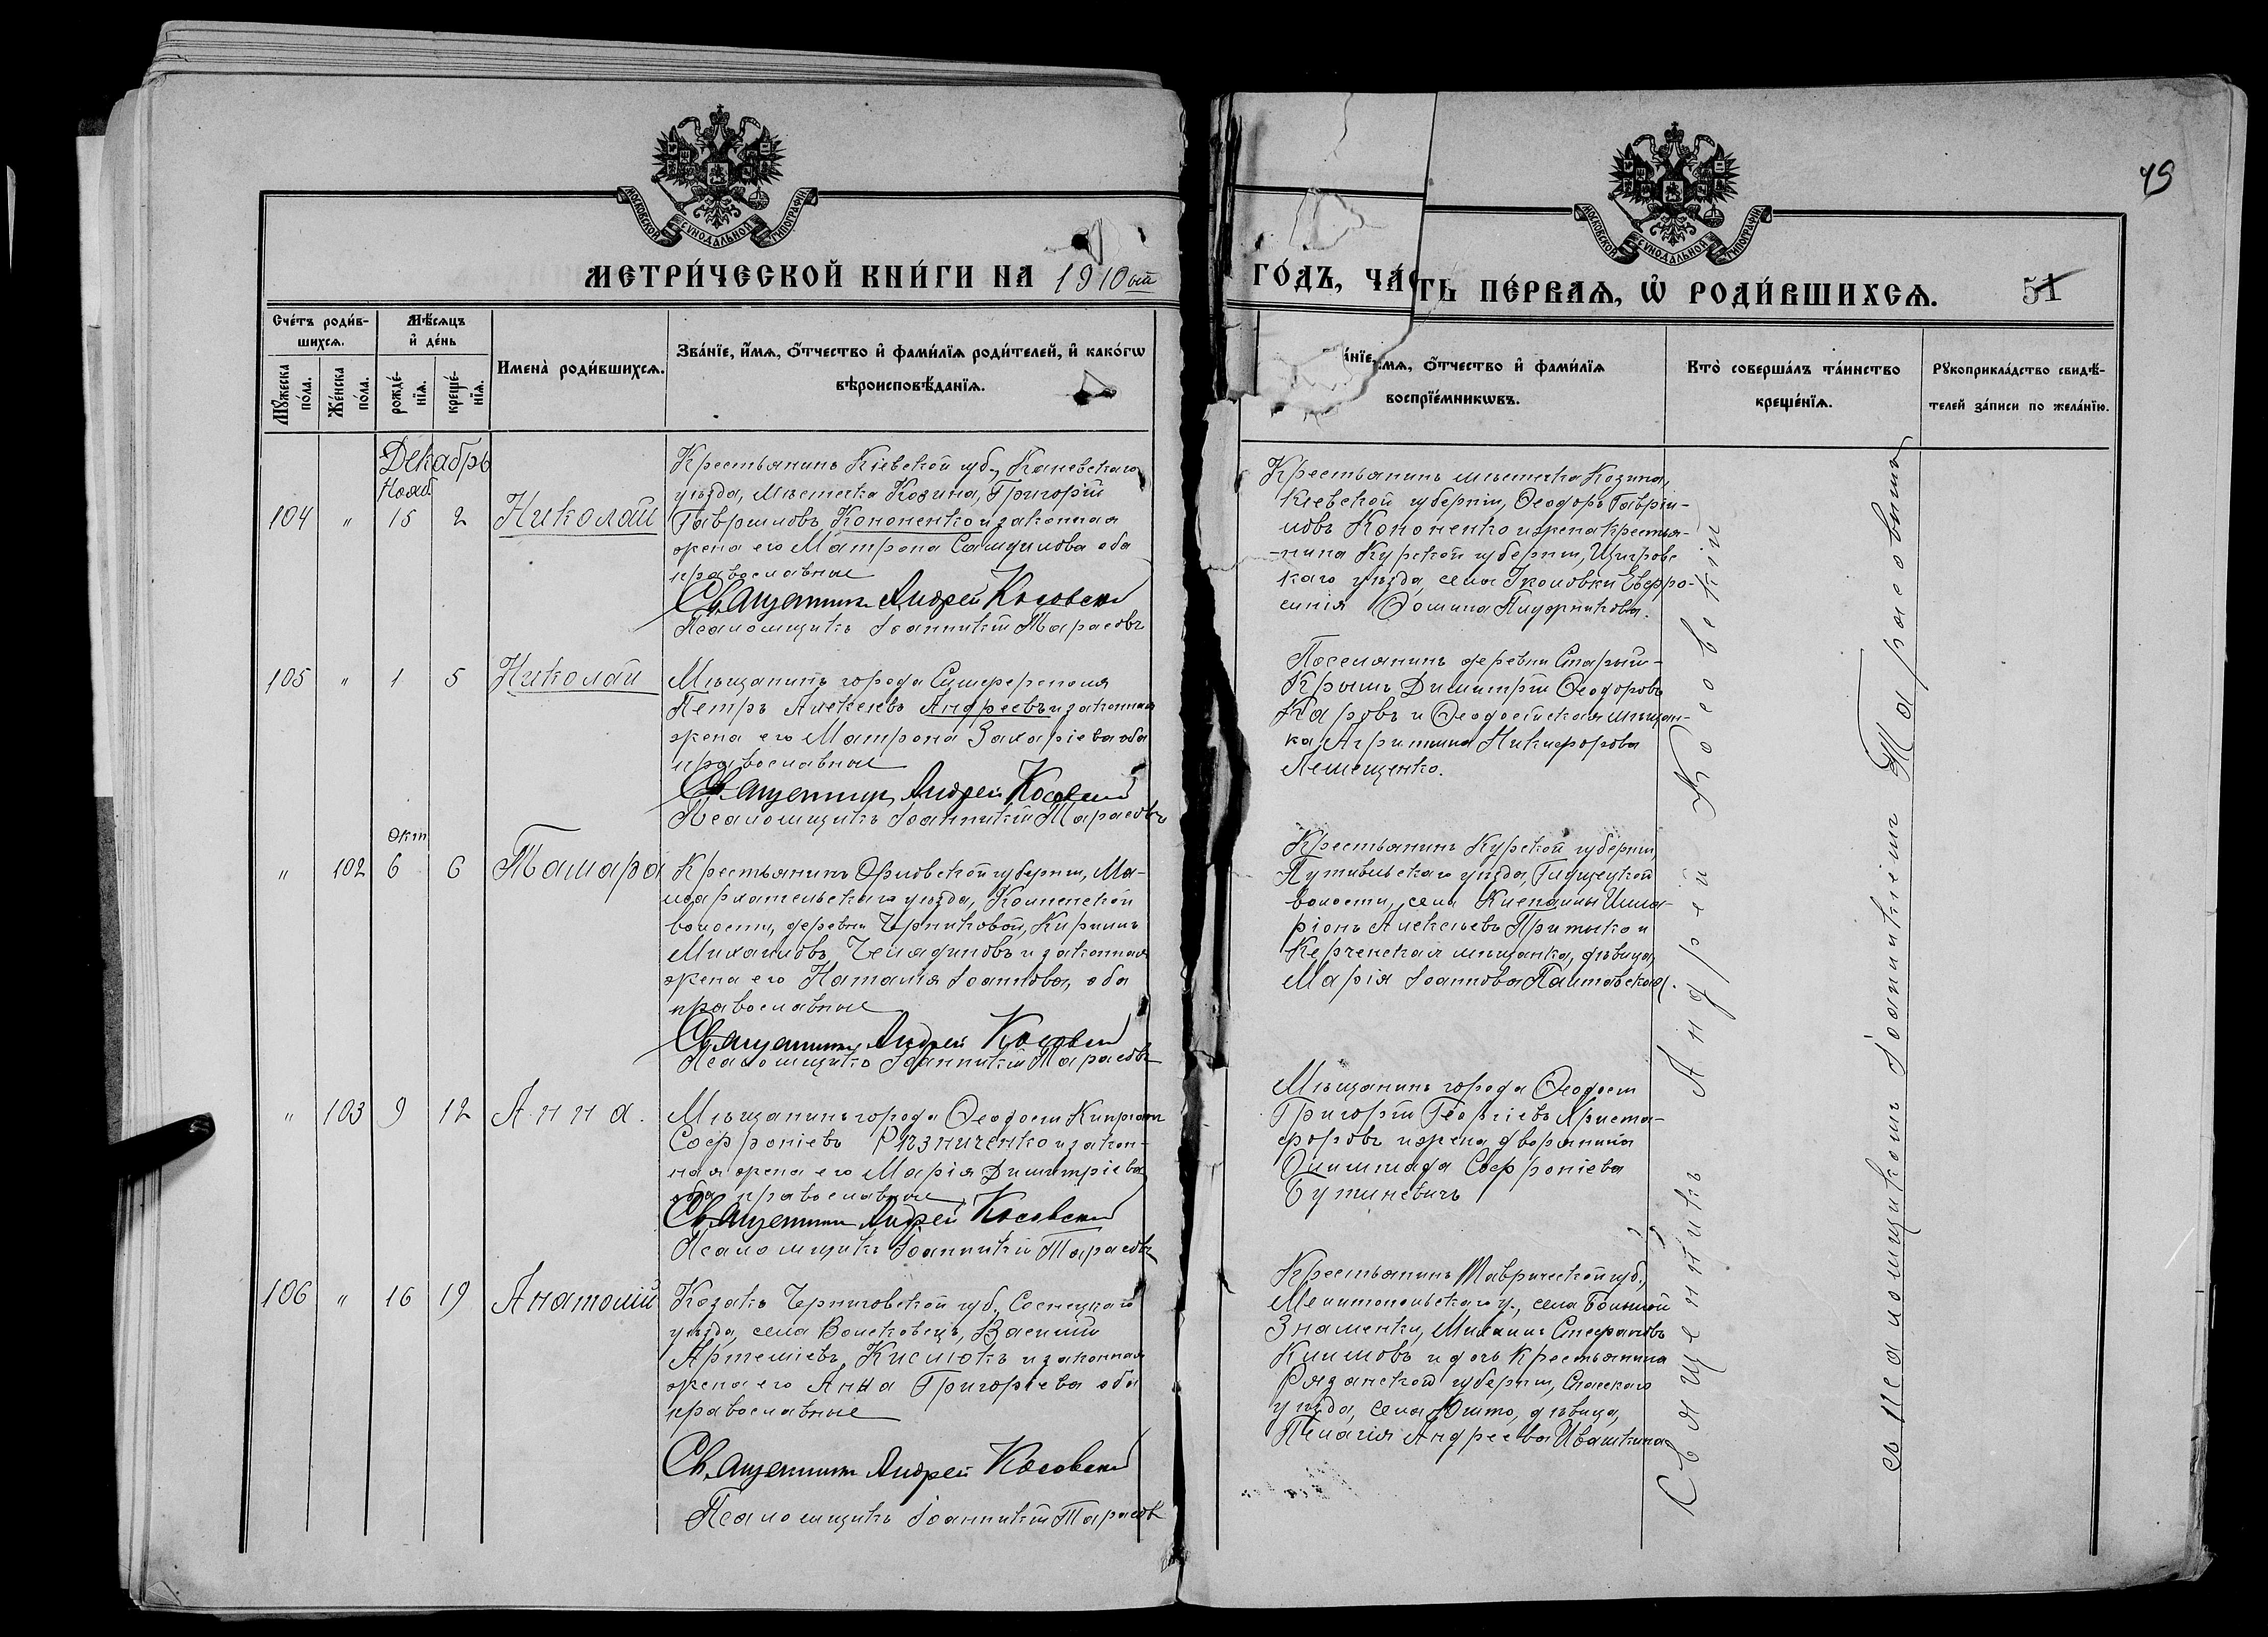 49
МОСКОВСКОЙ СУНОДАЛЬНОЙ ТИПОГРАФІИ
МОСКОВСКОЙ СУНОДАЛЬНОЙ ТИПОГРАФІИ
МЕТРИ́ЧЕСКОЙ КНИ́ГИ НА 1910ый
ГО́ДЪ, ЧА́СТЬ ПЕ́РВАѦ, Ѽ РОДИ́ВШИХСѦ.
51
Сче́тъ роди́в-
шихсѧ.
Мꙋ́жеска по́ла.
Же́нска по́ла.
Мѣ́сѧцъ
и҆ де́нь
рожде́-
нїѧ.
креще́-
нїѧ.
Имена̀ роди́вшихсѧ.
Зва́нїе, и҆́мѧ, ѻ҆́тчество и҆ фами́лїѧ роди́телей, и҆ како́гѡ
вѣроисповѣ́данїѧ.
а́нїе, и҆́мѧ, ѻ҆́тчество и҆ фами́лїѧ
воспрїе́мникѡвъ.
Кто̀ соверша́лъ та́инство
креще́нїѧ.
Рꙋкоприкла́дство свидѣ́-
телей за́писи по жела́нїю.
Декабрь
Нояб
104 " 15 2 Николай
Крестьянинъ Кіевской губ., Каневскаго
уѣзда, мѣстечка Козина, Григорій
Гавриловъ Кононенко и законная
жена его Матрона Самуилова оба
православные
Священникъ Андрей Косовскій
Псаломщикъ Іоанникій Тарасовъ
Крестьянинъ мѣстечка Козина,
Кіевской губерніи, Ѳеодоръ Гаврі-
ловъ Кононенко и жена крестья-
нина Курской губерніи, Щигровс
каго уѣзда, села Евфро-
синія Ѳомина
105 " 1 5 Николай
Мѣщанинъ города Симферополя
Петръ Алексѣевъ Андреевъ и законная
жена его Матрона Захаріева оба
православные
Священникъ Андрей Косовскій
Псаломщикъ Іоанникій Тарасовъ
Поселянинъ деревни Старый-
Крымъ Димитрій Ѳеодоровъ
Каровъ и Ѳеодосійская мѣщан-
ка Агриппина Никифорова
Лемещенко.
Окт
" 102 6 6 Тамара
Крестьянинъ Орловской губерніи, Ма-
лоархангельскаго уѣзда,
волости, деревни Черниковой, Кириллъ
Михаиловъ Челядиновъ и законная
жена его Наталія Іоаннова, оба
православные
Священникъ Андрей Косовскій
Псаломщикъ Іоанникій Тарасовъ
Крестьянинъ Курской губерніи,
Путивльскаго уѣзда, Глущецкой
волости, села Илла-
ріонъ Алексѣевъ Притыко и
Керченская мѣщанка, дѣвица,
Марія Іоаннова Палтавская.
" 103 9 12 Анна.
Мѣщанинъ города Ѳеодосіи Кипріанъ
Софроніевъ Рѣзниченко и закон-
ная жена его Марія Димитріева
оба православные
Священникъ Андрей Косовскій
Псаломщикъ Іоанникій Тарасовъ
Мѣщанинъ города Ѳеодосіи
Григорій Георгіевъ Христо-
форовъ и жена дворянина
Олимпіада Софроніева
Бутиневичъ
106 " 16 19 Анатолій
Козакъ Черниговской губ., Сосницкаго
уѣзда, села Волсковецъ, Василій
Артеміевъ Кислюкъ и законная
жена его Анна Григоріева оба
православные
Священникъ Андрей Косовскій
Псаломщикъ Іоанникій Тарасовъ
Крестьянинъ Таврической губ.,
Мелитопольскаго у., села Большой
Знаменки, Михаилъ Стефановъ
Климовъ и дочь крестьянина
Рязанской губерніи, Спасскаго
уѣзда, села Ижто, дѣвица,
Пелагія Андреева Ивашкина
Священникъ Андрей Косовскій
съ псаломщикомъ Іоанникіемъ Тарасовымъ